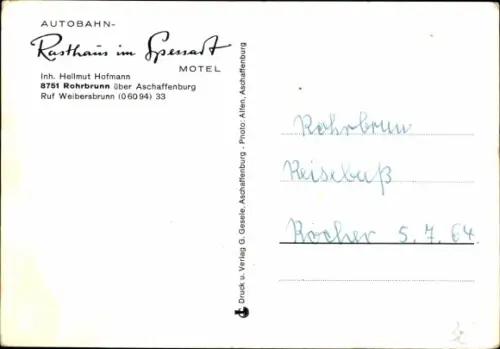 AUTOBAHN-
Rasthaus im Spessart
MOTEL
Inh. Hellmut Hofmann
8751 Rohrbrunn über Aschaffenburg
Ruf Weibersbrunn (0 60 94) 33
Druck u. Verlag G. Gesele, Aschaffenburg - Photo: Alfen, Aschaffenburg
Rohrbrun
Reisebuß
Röcher 5. 7. 64